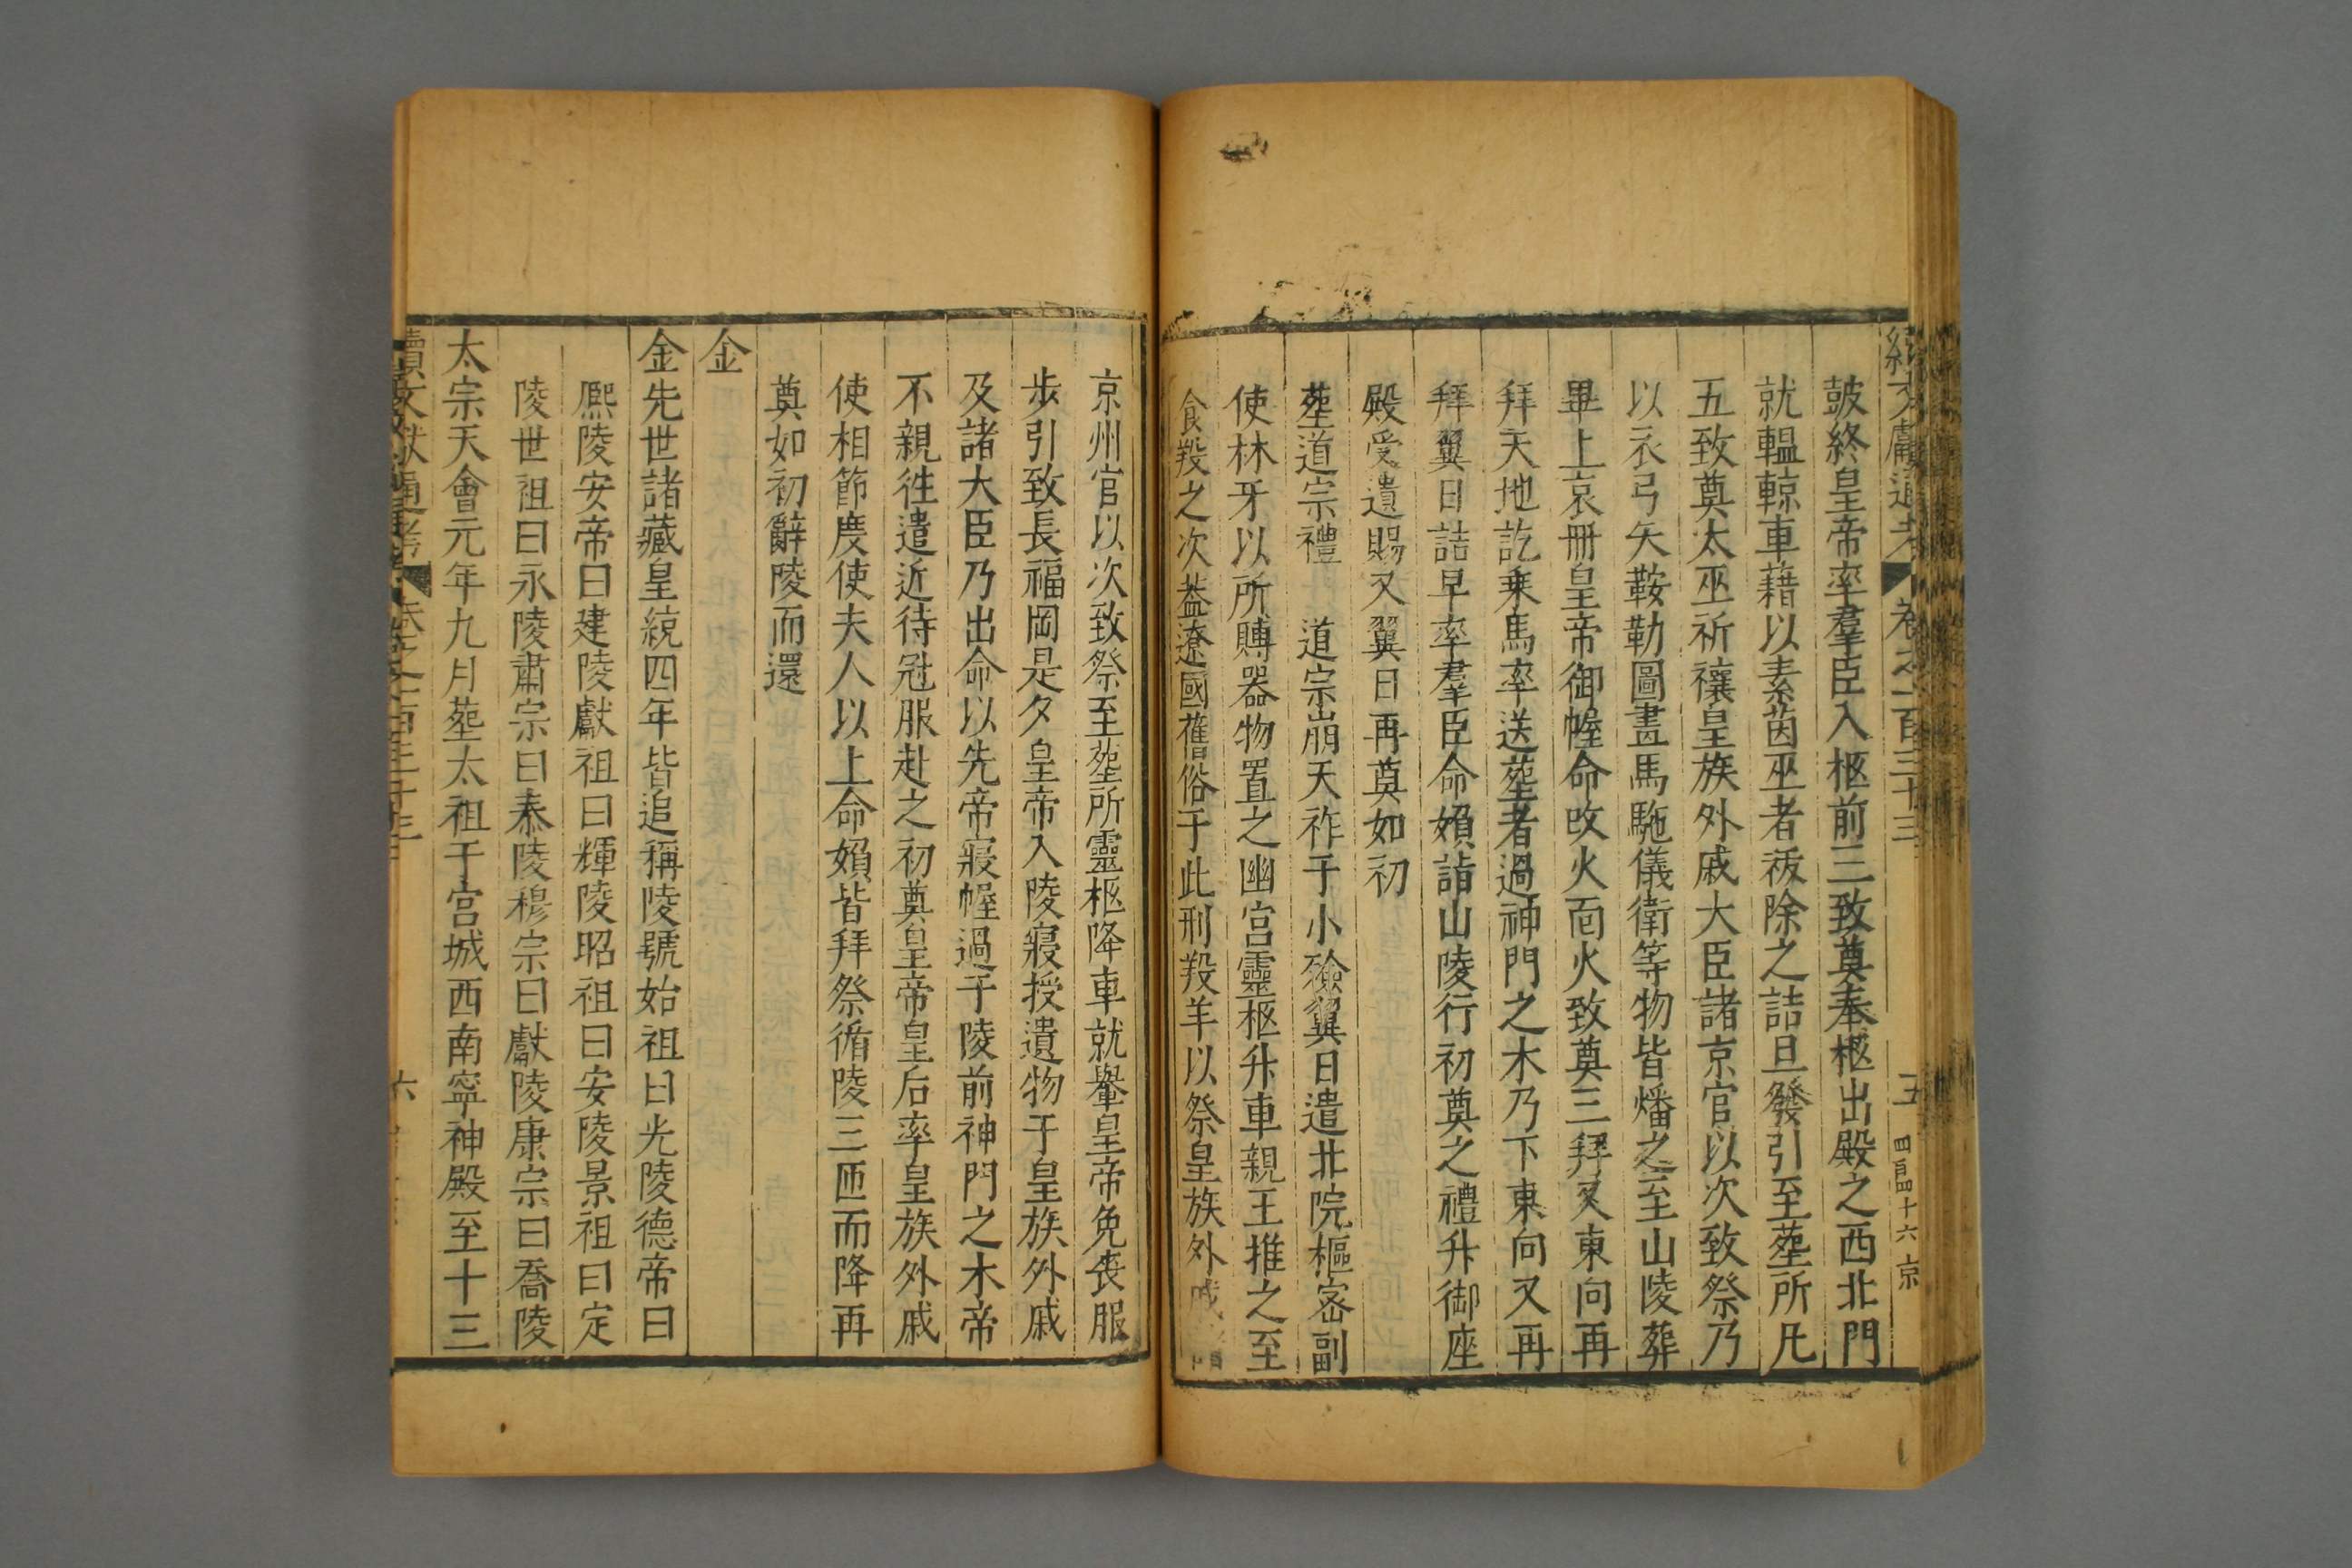 續文獻通考 卷之一百三十三 五 四百四十六 京
鼓終皇帝率羣臣入柩前三致奠奉柩出殿之西北門
就轀輬車藉以素茵巫者祓除之詰旦發引至塟所凡
五致奠太巫祈禳皇族外戚大臣諸京官以次致祭乃
以衣弓矢鞍勒圖畫馬駞儀衛等物皆燔之至山陵葬
畢上哀冊皇帝御幄命改火面火致奠三拜又東向再
拜天地訖乗馬率送塟者過神門之木乃下東向又再
拜翼日詰早率羣臣命婦詣山陵行初奠之禮升御座
殿受遺賜又翼日再奠如初
塟道宗禮 道宗崩天祚于小殮翼日遣北院樞宻副
使林牙以所賻器物置之幽宮靈柩升車親王推之至
食羖之次葢遼國舊俗于此刑羖羊以祭皇族外戚諸
京州官以次致祭至塟所靈柩降車就轝皇帝免䘮服
步引致長福岡是夕皇帝入陵寢授遺物于皇族外戚
及諸大臣乃出命以先帝寢幄過于陵前神門之木帝
不親徃遣近待冠服赴之初奠皇帝皇后率皇族外戚
使相節度使夫人以上命婦皆拜祭循陵三匝而降再
奠如初辭陵而還
金
金先世諸藏皇統四年皆追稱陵號始祖曰光陵德帝曰
熈陵安帝曰建陵獻祖曰輝陵昭祖曰安陵景祖曰定
陵世祖曰永陵肅宗曰泰陵穆宗曰獻陵康宗曰喬陵
太宗天會元年九月塟太祖于宮城西南寜神殿至十三
續文獻通考 卷之一百三十三 六